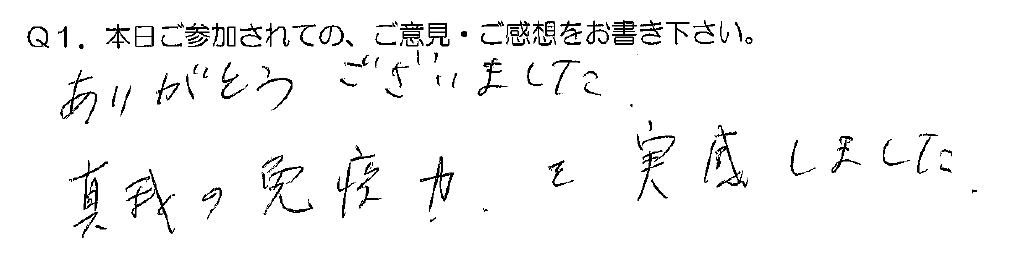 Q1．本日ご参加されての、ご意見・ご感想をお書き下さい。
ありがとうございました.
真我の免疫力.を実感しました.